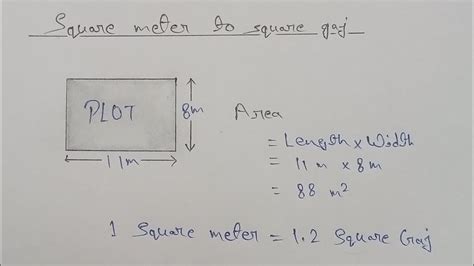 Square meter to square gaj
PLOT
8m
11m
Area
= Length x Width
= 11 m x 8m
= 88 m²
1 Square meter = 1.2 Square Gaj